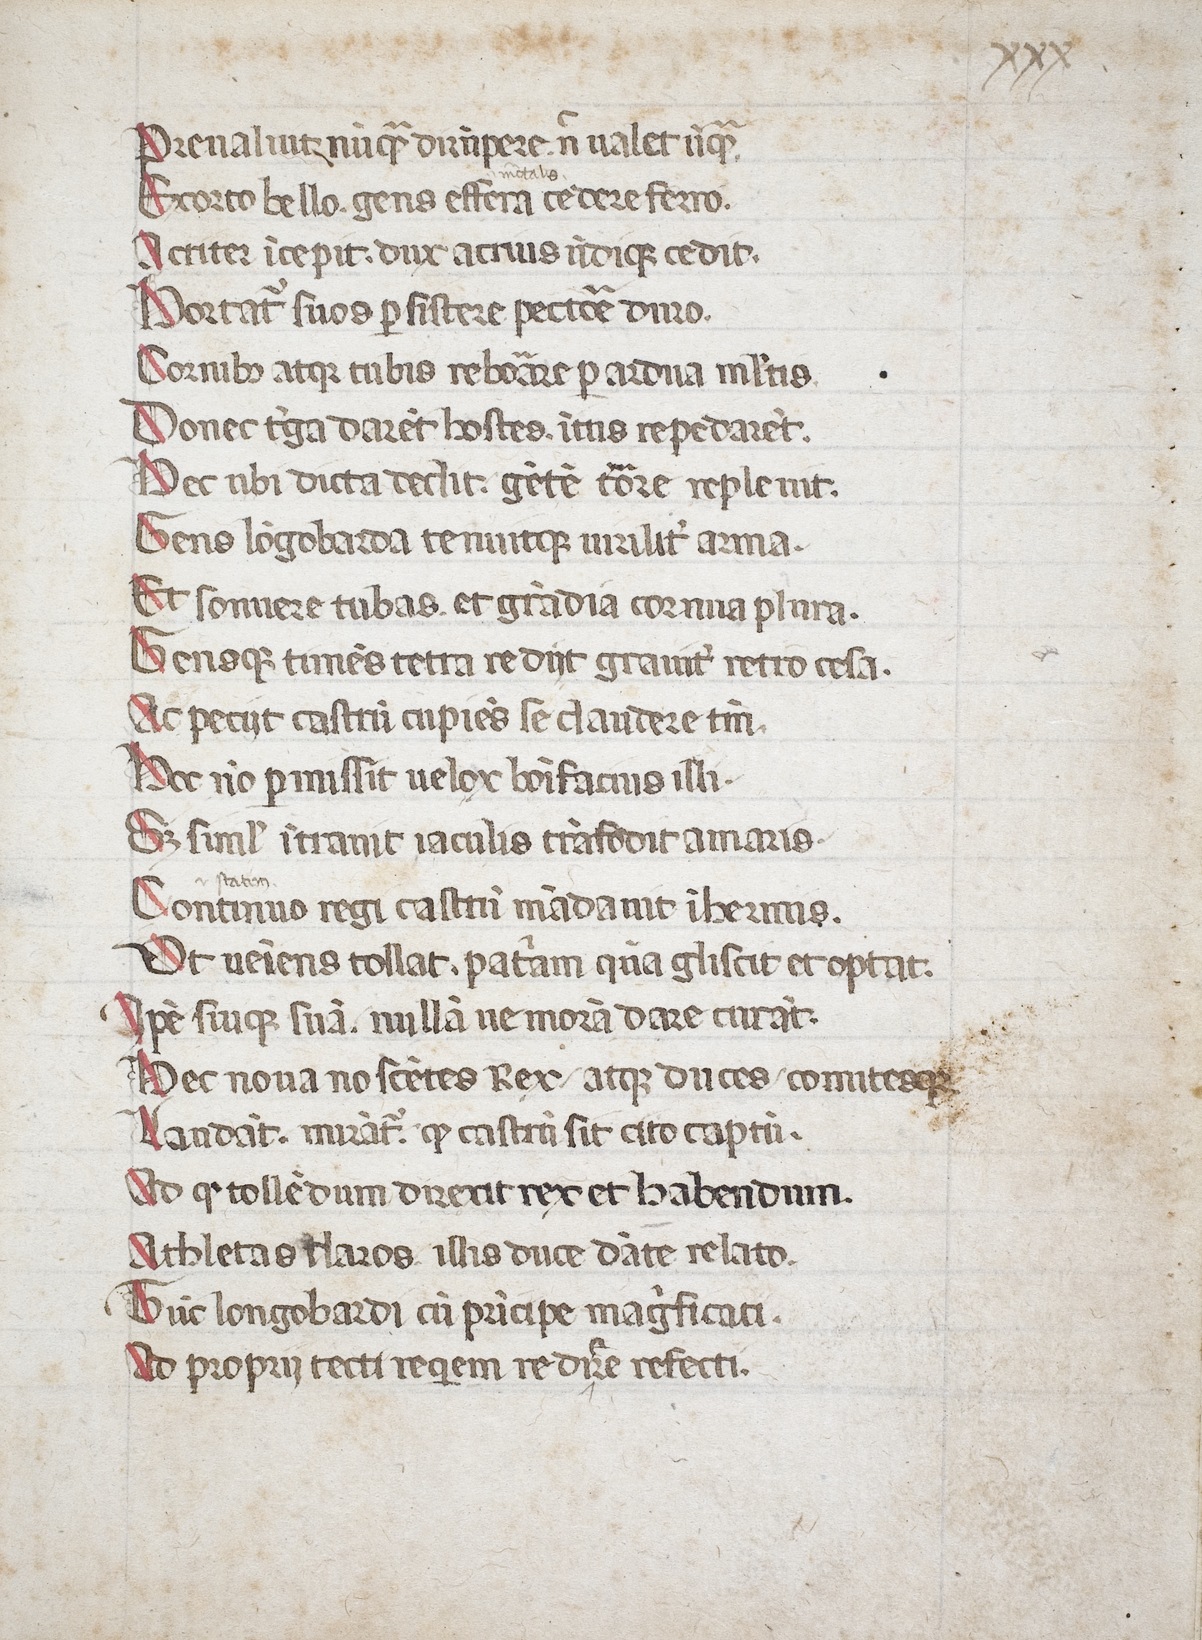 xxx
Preualuit nūq̃ dirūpere. n̄ ualet ūq̃.
i mortalis.
Exorto bello. gens effera cedere ferro.
Acriter īcepit. dux acrius ūdiqꝫ cedit.
Hortat᷑ suos ꝑsistere pectōe duro.
Cornibꝫ atqꝫ tubis reboāre ꝑ ardua ml̄tis.
Donec t̄ga darēt hostes. ītus repedarēt.
Hec ubi dicta dedit. gētē repleuit.
Gens lōgobarda tenuitqꝫ uirilit̄ arma.
Et sonuere tubas. et grādia cornua plura.
Gensqꝫ timēs tetra redijt grauit̄ retro cesa.
Ac petijt castrū cupiēs se claudere tm̄.
Hoc nō ꝑmissit uelox bōifacius illi.
Sꝫ siml̄ ītrauit iaculis trāsfodit amaris.
statim.
Continuo regi castrū mādauit ihermis.
Ut ueiens tollat. pat̄am q̄a gliscit et optat.
Ipē siuqꝫ suā. nullā ue morā dare curāt.
Hec noua noscētes Rex / atqꝫ duces / comitesqꝫ
Laudāt. mirāt᷑. qꝫ castrū sit cito captū.
Ad qꝫ tollēdum direxit rex et habendum.
Athletas claros. illis duce dāte relato.
Tūc longobardi cū prīcipe magīficati.
Ad proprij tecti reqiem redire refecti.